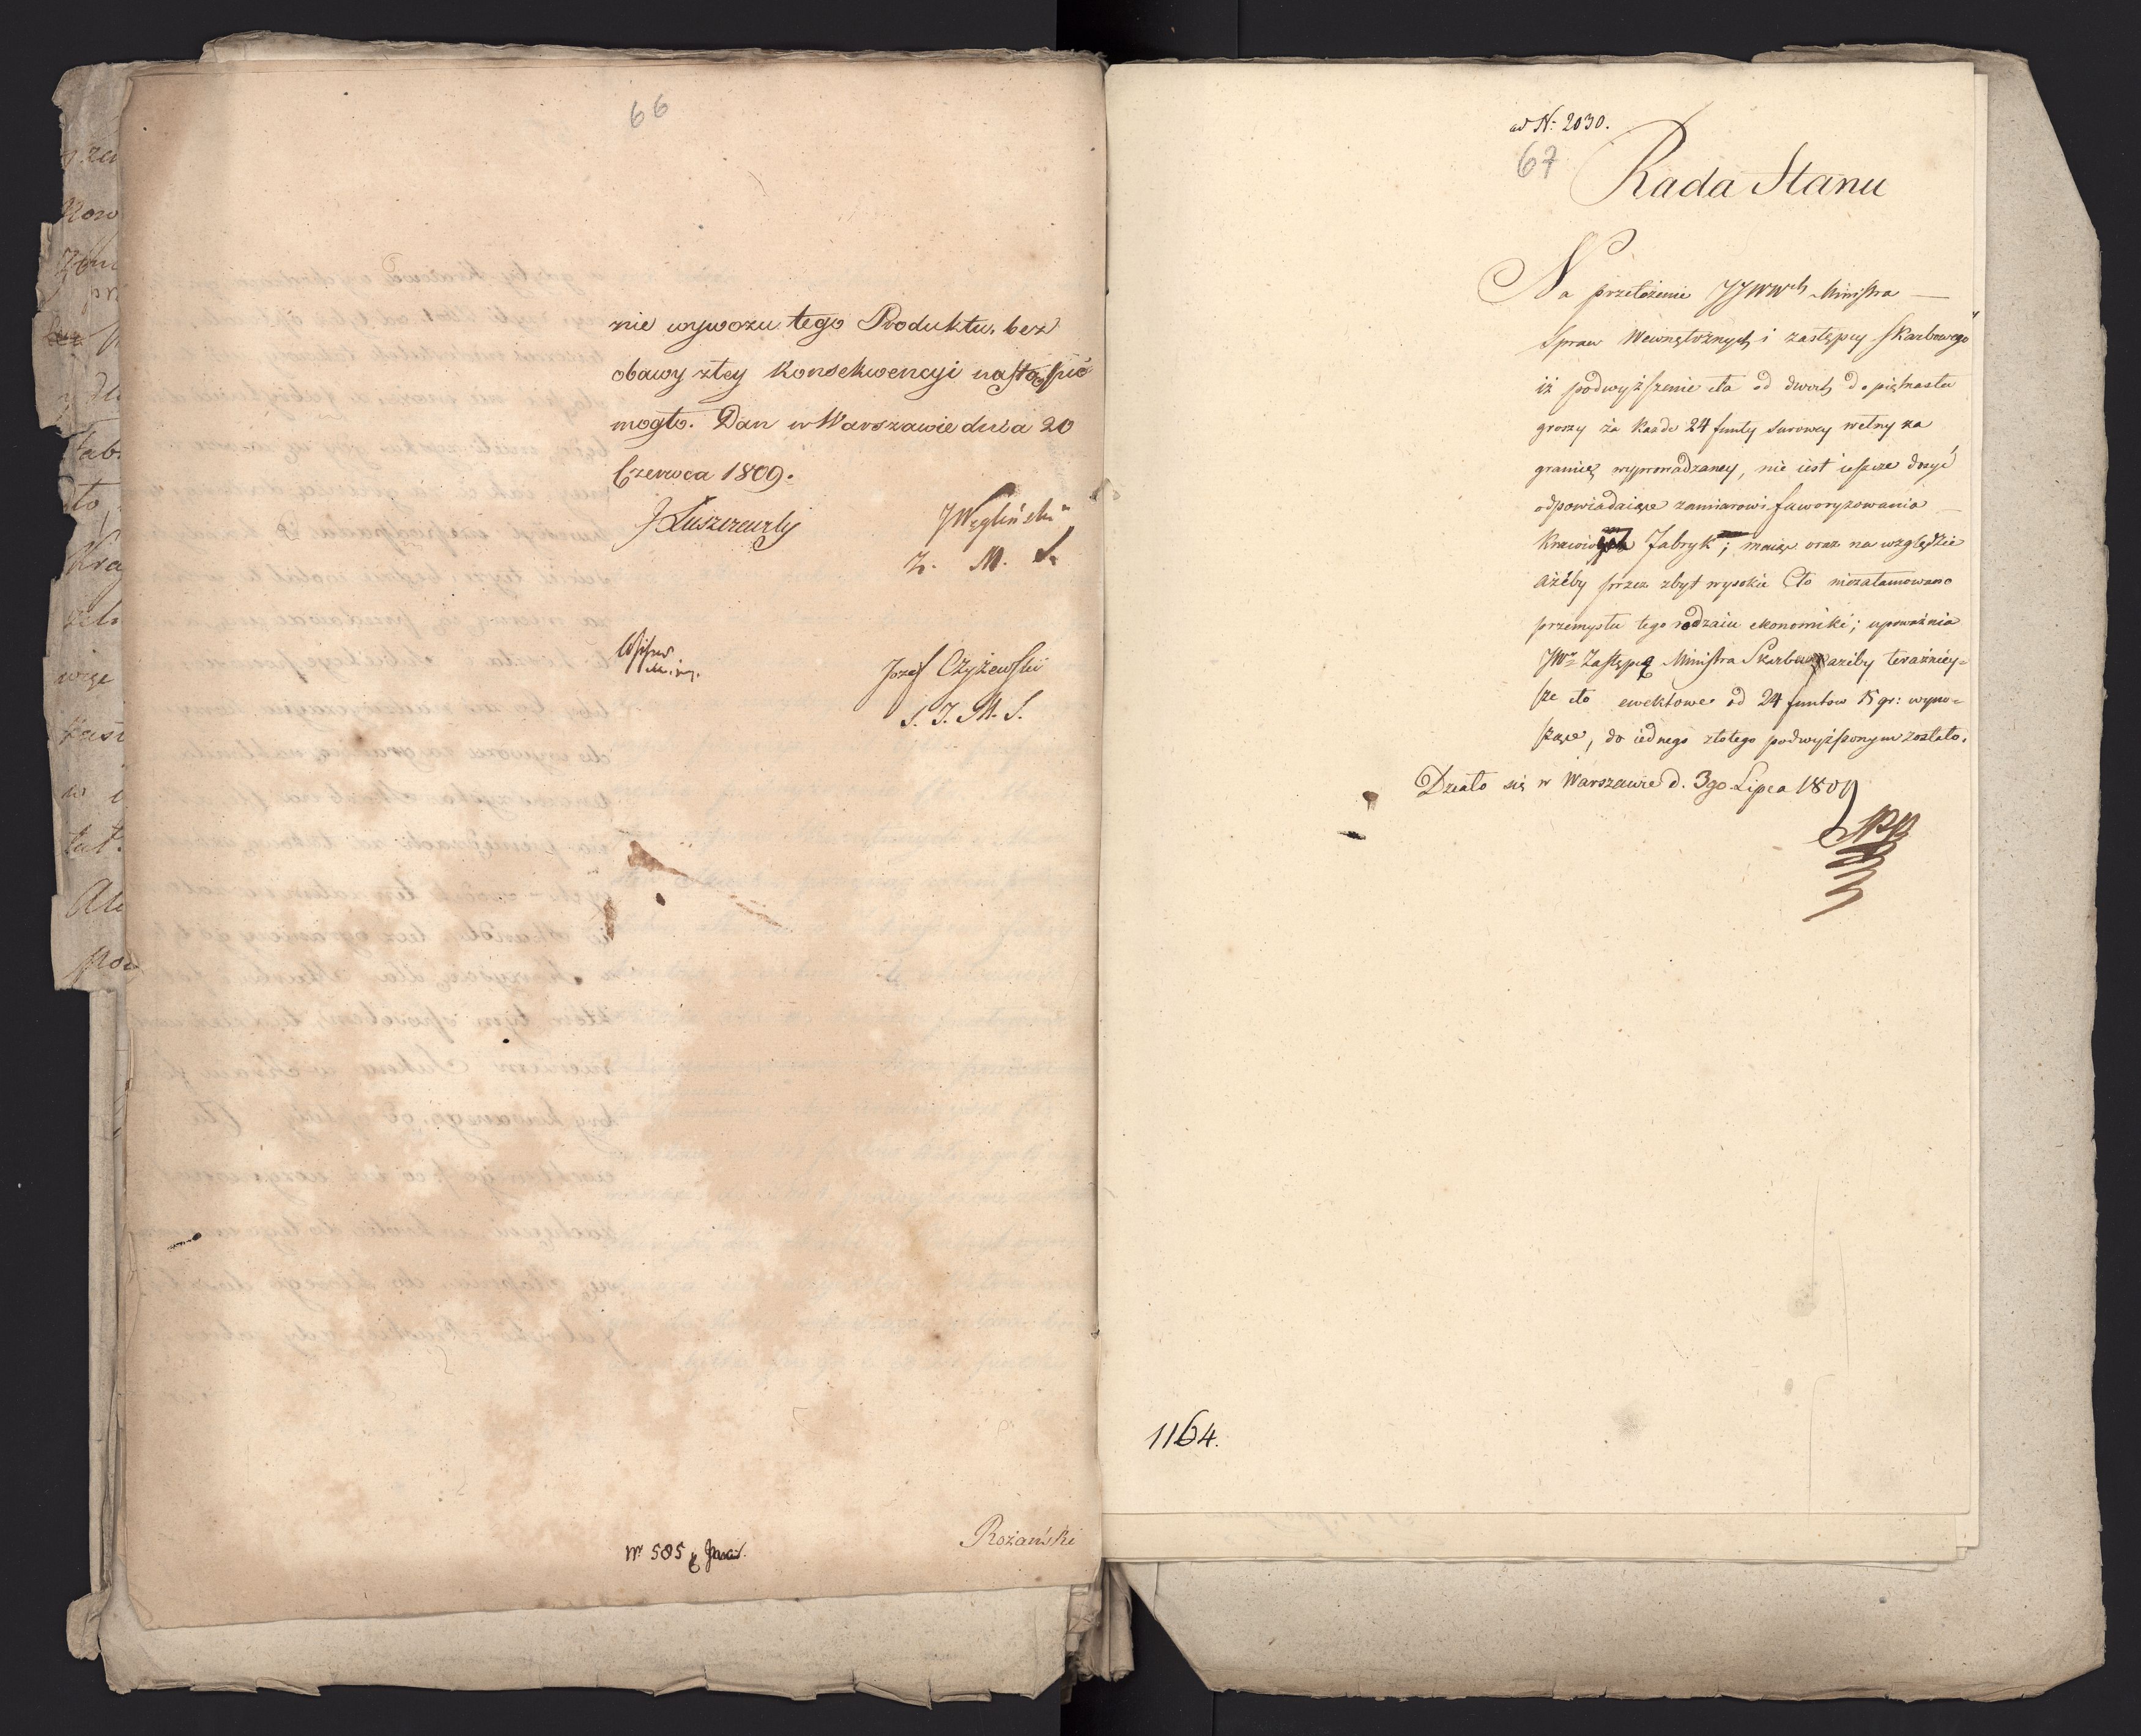 66
nie wywozu tego Produktu, bez
obawy złey Konsekwencyi nastąpić
mogło. Dan w Warszawie dnia 20
Czerwca 1809.
J Łuszczewski
JWęgliński
Z. M. S.
Józef Czyżewski
S. J. M. S.
Nr 585
Rożański
ad N: 2030.
67
Rada Stanu
Na przełożenie JJWWch Ministra
Spraw Wewnętrznych i zastępcy Skarbowego
iż podwyższenie cła od dwóch do piętnastu
groszy za każde 24 funty surowey wełny za
granicę wyprowadzaney, nie iest ieszcze dosyć
odpowiadaiące zamiarowi faworyzowania
Fabryk; maiąc oraz na względzie
ażeby przez zbyt wysokie Cło niezatamowano
przemysłu tego rodzaiu ekonomiki; upoważnia
JWo Zastępcę Ministra Skarbu ażeby teraźniey-
sze cło ewektowe od 24 funtow 15 gr: wyno-
szące, do iednego złotego podwyższonym zostało.
Działo się w Warszawie d. 3go Lipca 1809
1164.